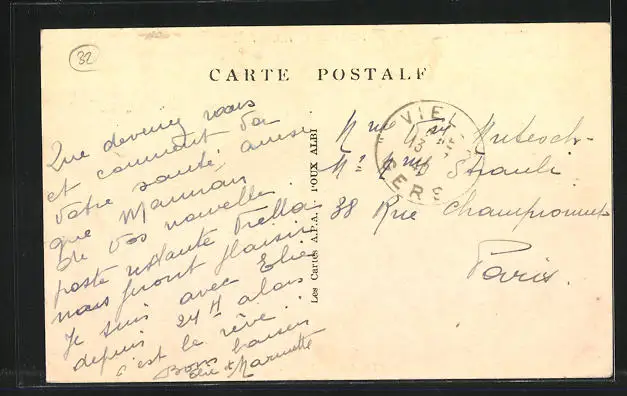 32
CARTE POSTALE
Que devenez vous
et comment va
votre santé, ainsi
que Maman
De vos nouvelles
poste restante
nous feront plaisir
Je suis avec Elie
depuis 24 H alors
c'est le rêve...
Bons baisers
Elie et Marinette
Les Cartes A.P.A. POUX ALBI
VIC
GERS
Mme et
Mr Mme Strauli
38 Rue Championnet
Paris.